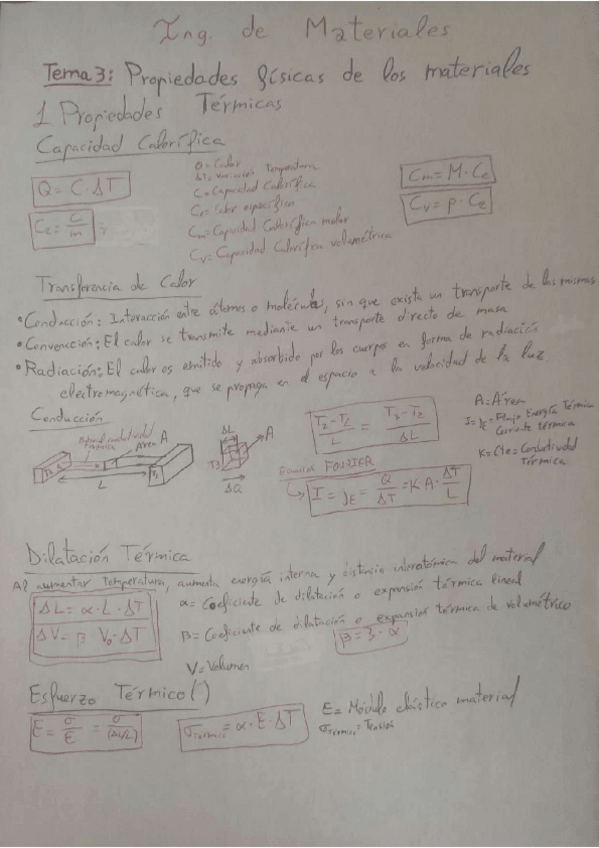 Ing. de Materiales
Tema 3: Propiedades físicas de los materiales
1 Propiedades Térmicas
Capacidad Calorífica
Q = C · ΔT
Ce = C/m
Q = Calor
ΔT = Variación Temperatura
C = Capacidad Calorífica
Ce = Calor específico
Cm = Capacidad Calorífica molar
Cv = Capacidad Calorífica volumétrica
Cm = M · Ce
Cv = ρ · Ce
Transferencia de Calor
• Conducción: Interacción entre átomos o moléculas, sin que exista un transporte de las mismas
• Convención: El calor se transmite mediante un transporte directo de masa
• Radiación: El calor es emitido y absorbido por los cuerpos en forma de radiación
electromagnética, que se propaga en el espacio a la velocidad de la luz
Conducción
Area A
L
T1
ΔL
A
T3
ΔQ
T2-T1/L = T3-T2/ΔL
FOURIER
I = jE = Q/ΔT = K A · ΔT/L
A = Área
I = jE = Flujo Energía Térmica
Corriente térmica
K = Cte = Conductividad
Térmica
Dilatación Térmica
Al aumentar temperatura, aumenta energía interna y distancia interatómica del material
ΔL = α · L · ΔT
ΔV = β · V0 · ΔT
α = Coeficiente de dilatación o expansión térmica lineal
β = Coeficiente de dilatación o expansión térmica de volumétrico
β = 3 · α
V = Volumen
Esfuerzo Térmico ( )
E = σ/ε = σ/(ΔL/L)
σtérmico = α · E · ΔT
E = Módulo elástico material
σtérmico = Tensión